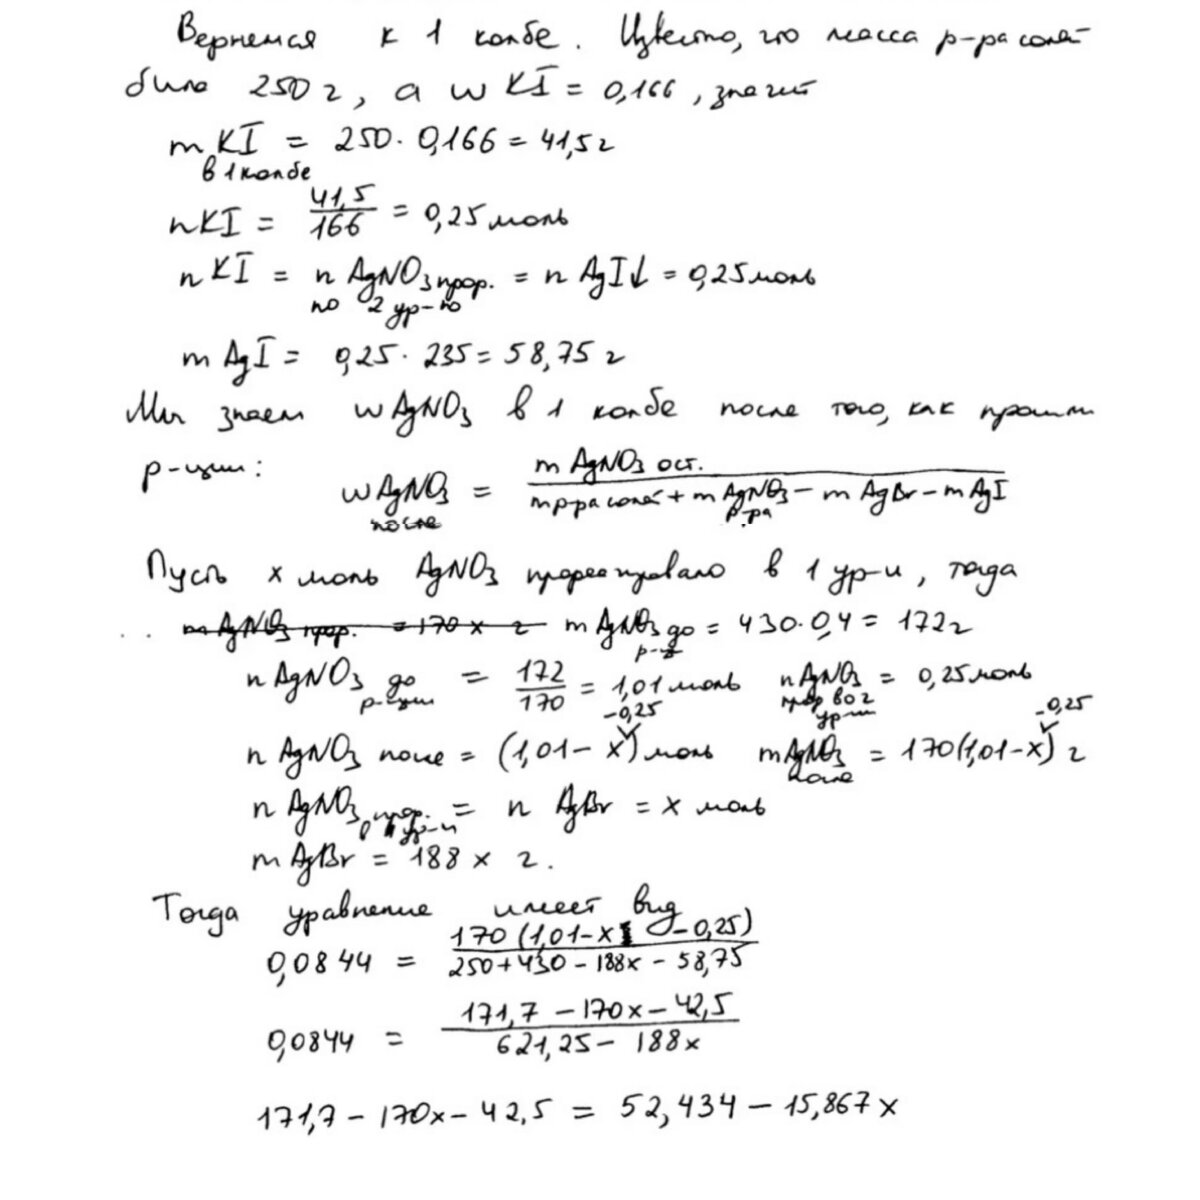 Вернемся к 1 колбе. Известно, что масса р-ра солей
была 250 г, а w KI = 0,166, значит
m KI = 250 · 0,166 = 41,5 г
в 1 колбе
nKI = 41,5/166 = 0,25 моль
n KI = n AgNO3 прор. = n AgI↓ = 0,25 моль
по 2 ур-ю
m AgI = 0,25 · 235 = 58,75 г
Мы знаем w AgNO3 в 1 колбе после того, как прошли
р-ции:
w AgNO3 после = m AgNO3 ост. / m р-ра солей + m AgNO3 р-ра − m AgBr − m AgI
Пусть x моль AgNO3 прореагировало в 1 ур-и, тогда
m AgNO3 прор. = 170 x г m AgNO3 до р-и = 430 · 0,4 = 172 г
n AgNO3 до р-ции = 172/170 = 1,01 моль n AgNO3 прор во 2 ур-и = 0,25 моль
n AgNO3 после = (1,01 − x − 0,25) моль m AgNO3 после = 170(1,01 − x − 0,25) г
n AgNO3 прор. в 1 ур-и = n AgBr = x моль
m AgBr = 188 x г.
Тогда уравнение имеет вид
0,0844 = 170 (1,01 − x − 0,25) / 250 + 430 − 188x − 58,75
0,0844 = 171,7 − 170x − 42,5 / 621,25 − 188x
171,7 − 170x − 42,5 = 52,434 − 15,867 x